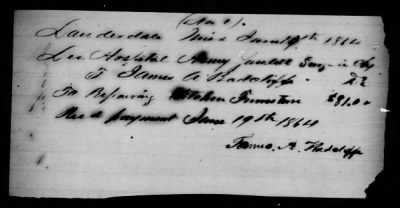 (No 1).
Lauderdale Miss June 19th 1864
Lee Hospital Army
To James A Radcliffe
To Repairing Kitchen Furniture $81.00
Recd payment June 19th 1864
James A. Radcliffe